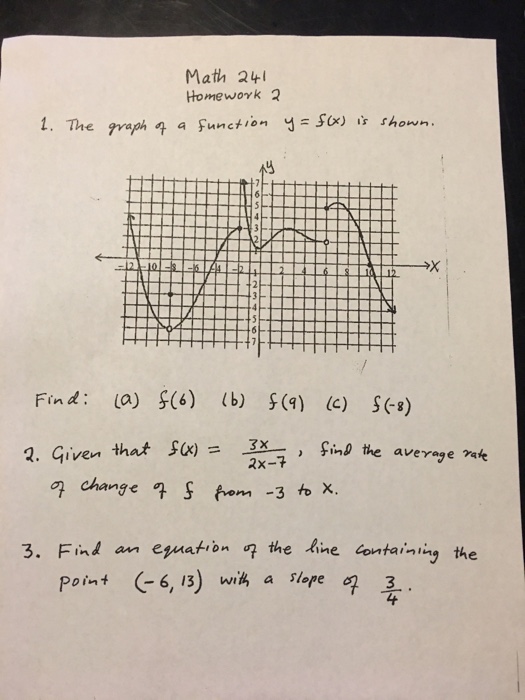 Math 241
Homework 2
1. The graph of a function y = f(x) is shown.
y
7
6
5
4
3
2
-12 -10 -8 -6 -4 -2 1 2 4 6 8 10 12 X
-2
-3
-4
-5
-6
-7
Find: (a) f(6) (b) f(9) (c) f(-8)
2. Given that f(x) = 3x / 2x-7 , find the average rate
of change of f from -3 to x.
3. Find an equation of the line containing the
point (-6, 13) with a slope of 3/4.